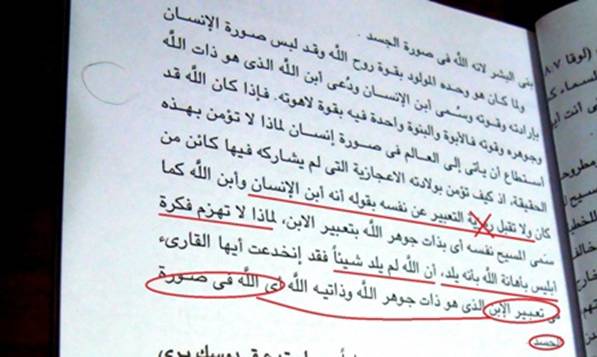 بنى البشر لانه الله فى صورة الجسد .
ولما كان هو وحده المولود بقوة روح الله وقد لبس صورة الإنسان
بإرادته وقوته وسُمى ابن الإنسان ودُعى أبن الله الذى هو ذات الله
وجوهره وقوته فالأبوة والبنوة واحدة فيه بقوة لاهوته. فإذا كان الله قد
استطاع أن يأتى إلى العالم فى صورة إنسان لماذا لا تؤمن بهذه
الحقيقة، اذ كيف تؤمن بولادته الاعجازية التى لم يشاركه فيها كائن من
كان ولا تقبل التعبير عن نفسه بقوله أنه أبن الإنسان وأبن الله كما
سمّى المسيح نفسه أى بذات جوهر الله بتعبير الابن، لماذا لا تهزم فكرة
أبليس بأهانة الله بأنه يلد، أن الله لم يلد شيئاً فقد إنخدعت أيها القارىء
تعبير الإبن الذى هو ذات جوهر الله وذاتيه الله أى الله فى صورة
الجسد
(لوقا ٨.٧
السماء